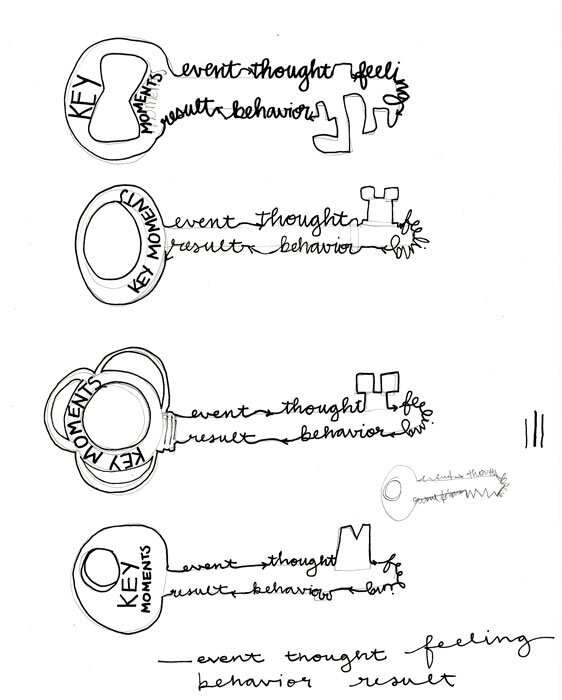 KEY MOMENTS
event thought feeling
result behavior
KEY MOMENTS
event thought feeling
result behavior
KEY MOMENTS
event thought feeling
result behavior
event thou
KEY MOMENTS
event thought feeling
result behavior
event thought feeling
behavior result